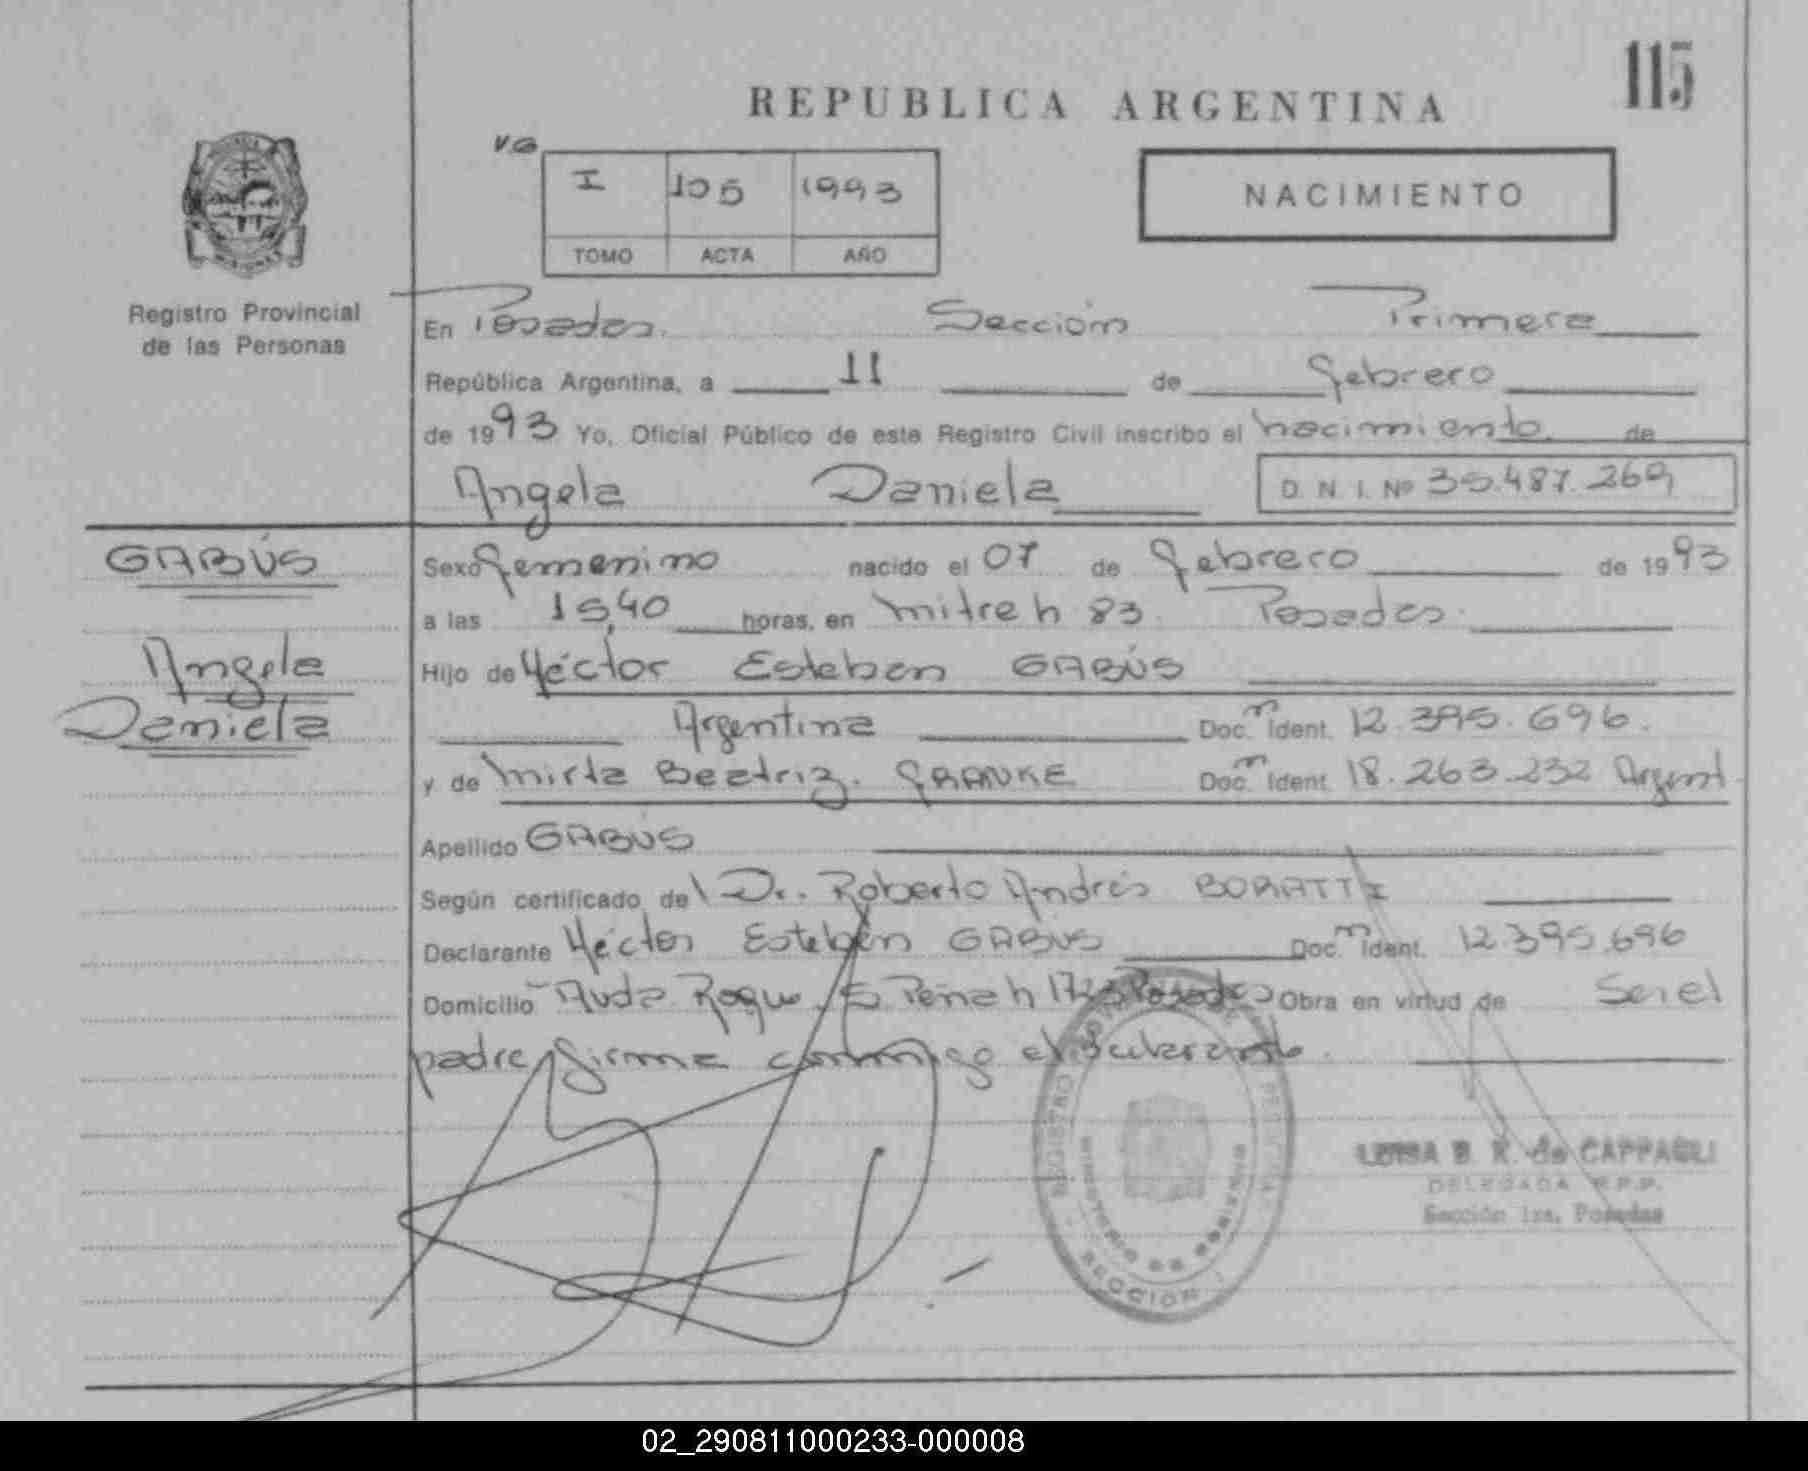 115
REPUBLICA ARGENTINA
V.G.
I 105 1993
TOMO ACTA AÑO
NACIMIENTO
Registro Provincial
de las Personas
En Posadas. Sección Primera
República Argentina, a 11 de febrero
de 1993 Yo, Oficial Público de este Registro Civil inscribo el nacimiento de
Angela Daniela D. N. I. Nº 35.487.269
GABÚS
Angela
Daniela
Sexo femenino nacido el 07 de febrero de 1993
a las 15,40 horas, en mitre n 83. Posadas.
Hijo de Héctor Esteban GABÚS
Argentina Doc. Ident. 12.395.696.
y de Mirta Beatriz. FRANKE Doc. Ident. 18.263.232 Argent.
Apellido GABUS
Según certificado de l Dr. Roberto Andrés BORATTI
Declarante Héctor Esteban GABUS Doc. Ident. 12.395.696
Domicilio Avda. Roque S. Peña n Posadas Obra en virtud de Ser el
padre, firma conmigo el declarante.
REGISTRO PROVINCIAL
MINISTERIO DE GOBIERNO
SECCION 1
LUISA B. K. de CAPPAGLI
DELEGADA R.P.P.
Sección 1ra. Posadas
02_290811000233-000008